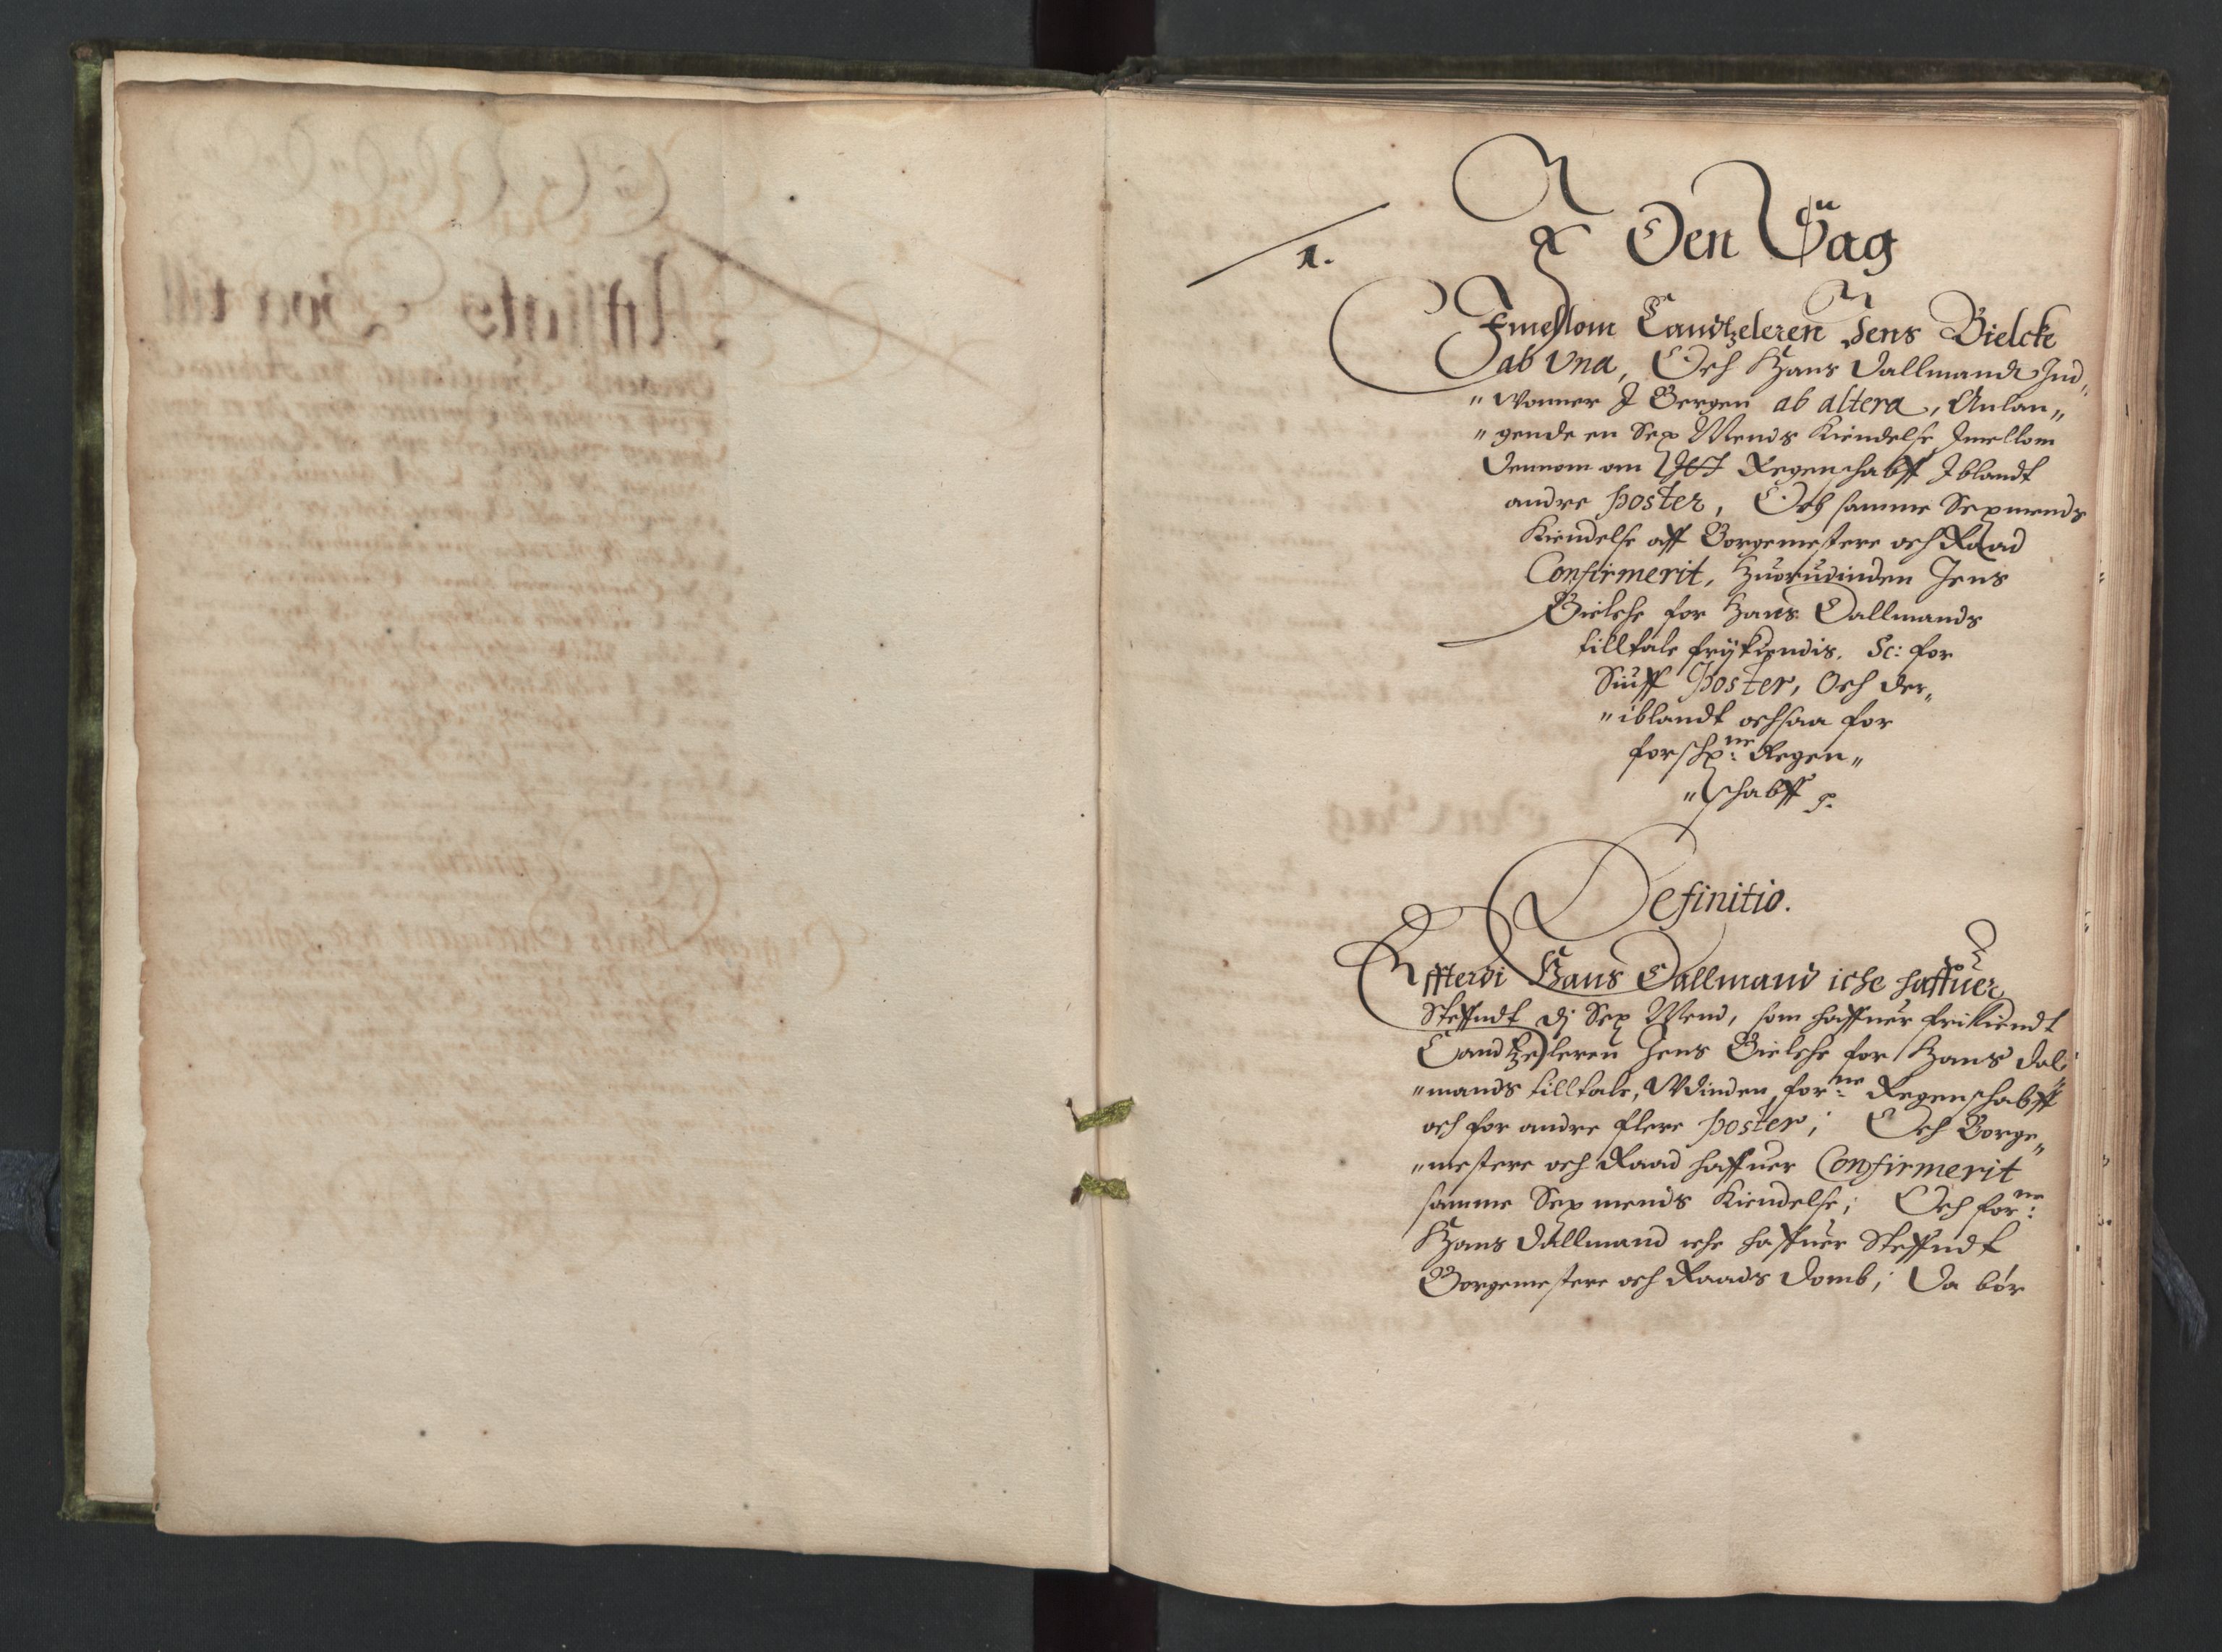 1.
Den Sag
Emellom Candtzeleren Jens Bielcke
ab una, Och Hans Dallmand Ind„
„wonner I Bergen ab altera, Anlan„
„gende en Sex Mends Kiendelse Imellom
dennom om Regenschabff Iblandt
andre poster, Och samme Sexmends
Kiendelse aff Borgemestere och Raad
Confirmerit, Huorudinden Jens
Bielche for Hans Dallmands
tilltale frijkiendis. Sc: for
Siuff poster, Och der„
„iblandt ochsaa for
forschr:ne Regen„
„schabff
Definitio.
Effterdi Hans Dallmand iche haffuer
Steffndt dj Sex Mend, som haffuer frikiendt
Candtzeleren Jens Bielche for Hans Dal„
„mands tilltale, Udinden for:ne Regenschabff
och for andre flere poster; Och Borge„
„mestere och Raad haffuer Confirmerit
samme Sex mends Kiendelse; Och for:ne
Hans Dallmand iche haffuer Steffndt
Borgemestere och Raads domb; Da bør